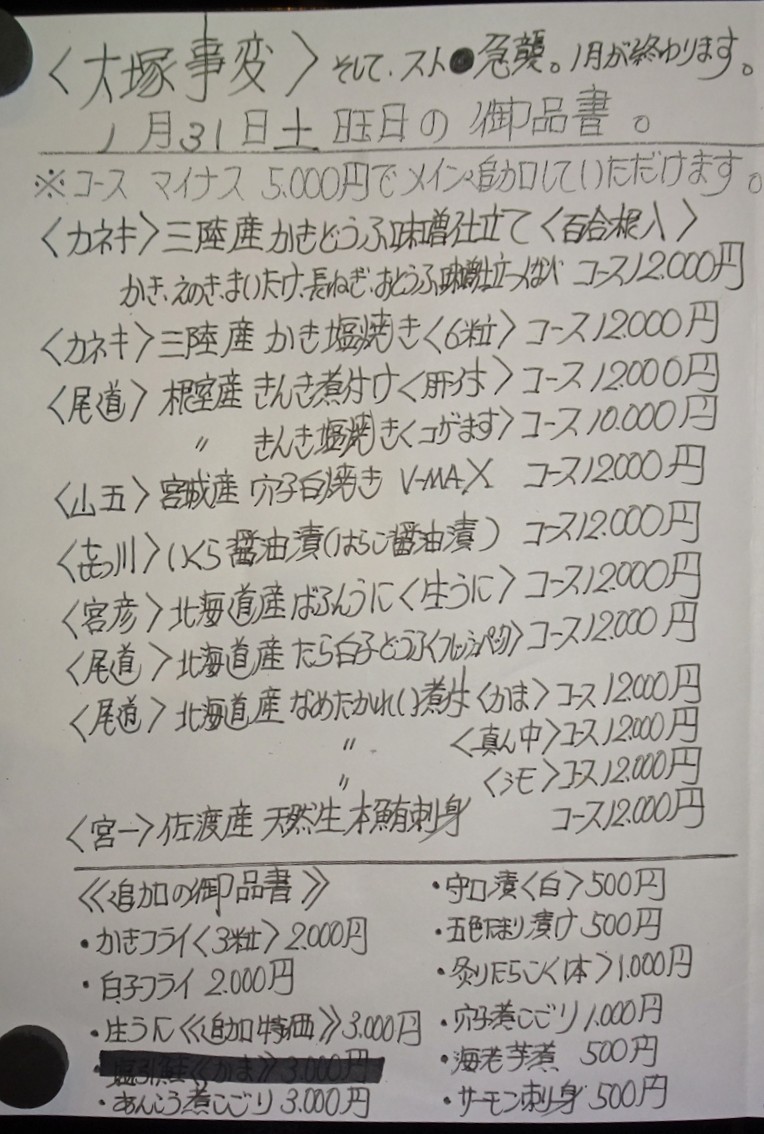 〈大塚事変〉そして、スト●急襲。1月が終わります。
1月31日土旺日の御品書。
※コース マイナス 5.000円でメイン追加していただけます。
〈カネキ〉三陸産かきどうふ味噌仕立て〈百合根入〉
かき、えのき、まいたけ、長ねぎ、おとうふ味噌仕立つなべ コース12.000円
〈カネキ〉三陸産 かき塩焼き〈6粒〉コース12.000円
〈尾道〉根室産 きんき煮付け〈肝付〉コース12000円
〃 きんき塩焼き〈コがます〉コース10.000円
〈山五〉宮城産 穴子白焼き V-MAX コース12000円
川〉いくら醤油漬(はらこ醤油漬) コース12.000円
〈宮彦〉北海道産ばふんうに〈生うに〉コース12.000円
〈尾道〉北海道産 たら白子どうふ〈フレッシュパック〉コース12.000円
〈尾道〉北海道産なめたかれい煮付〈かま〉コース12.000円
〃 〈真ん中〉コース12.000円
〃 〈シモ〉コース12.000円
〈宮一〉佐渡産 天然生本鮪刺身 コース12.000円
《追加の御品書》
・かきフライ〈3粒〉2.000円
・白子フライ 2.000円
・生うに《追加特価》3.000円
・塩引鮭《かま》3.000円
・あんこう煮こごり 3.000円
・守口漬〈白〉500円
・五色たまり漬け 500円
・炙りたらこ〈1本〉1.000円
・穴子煮こごり 1.000円
・海老芋煮 500円
・サーモン刺身 500円